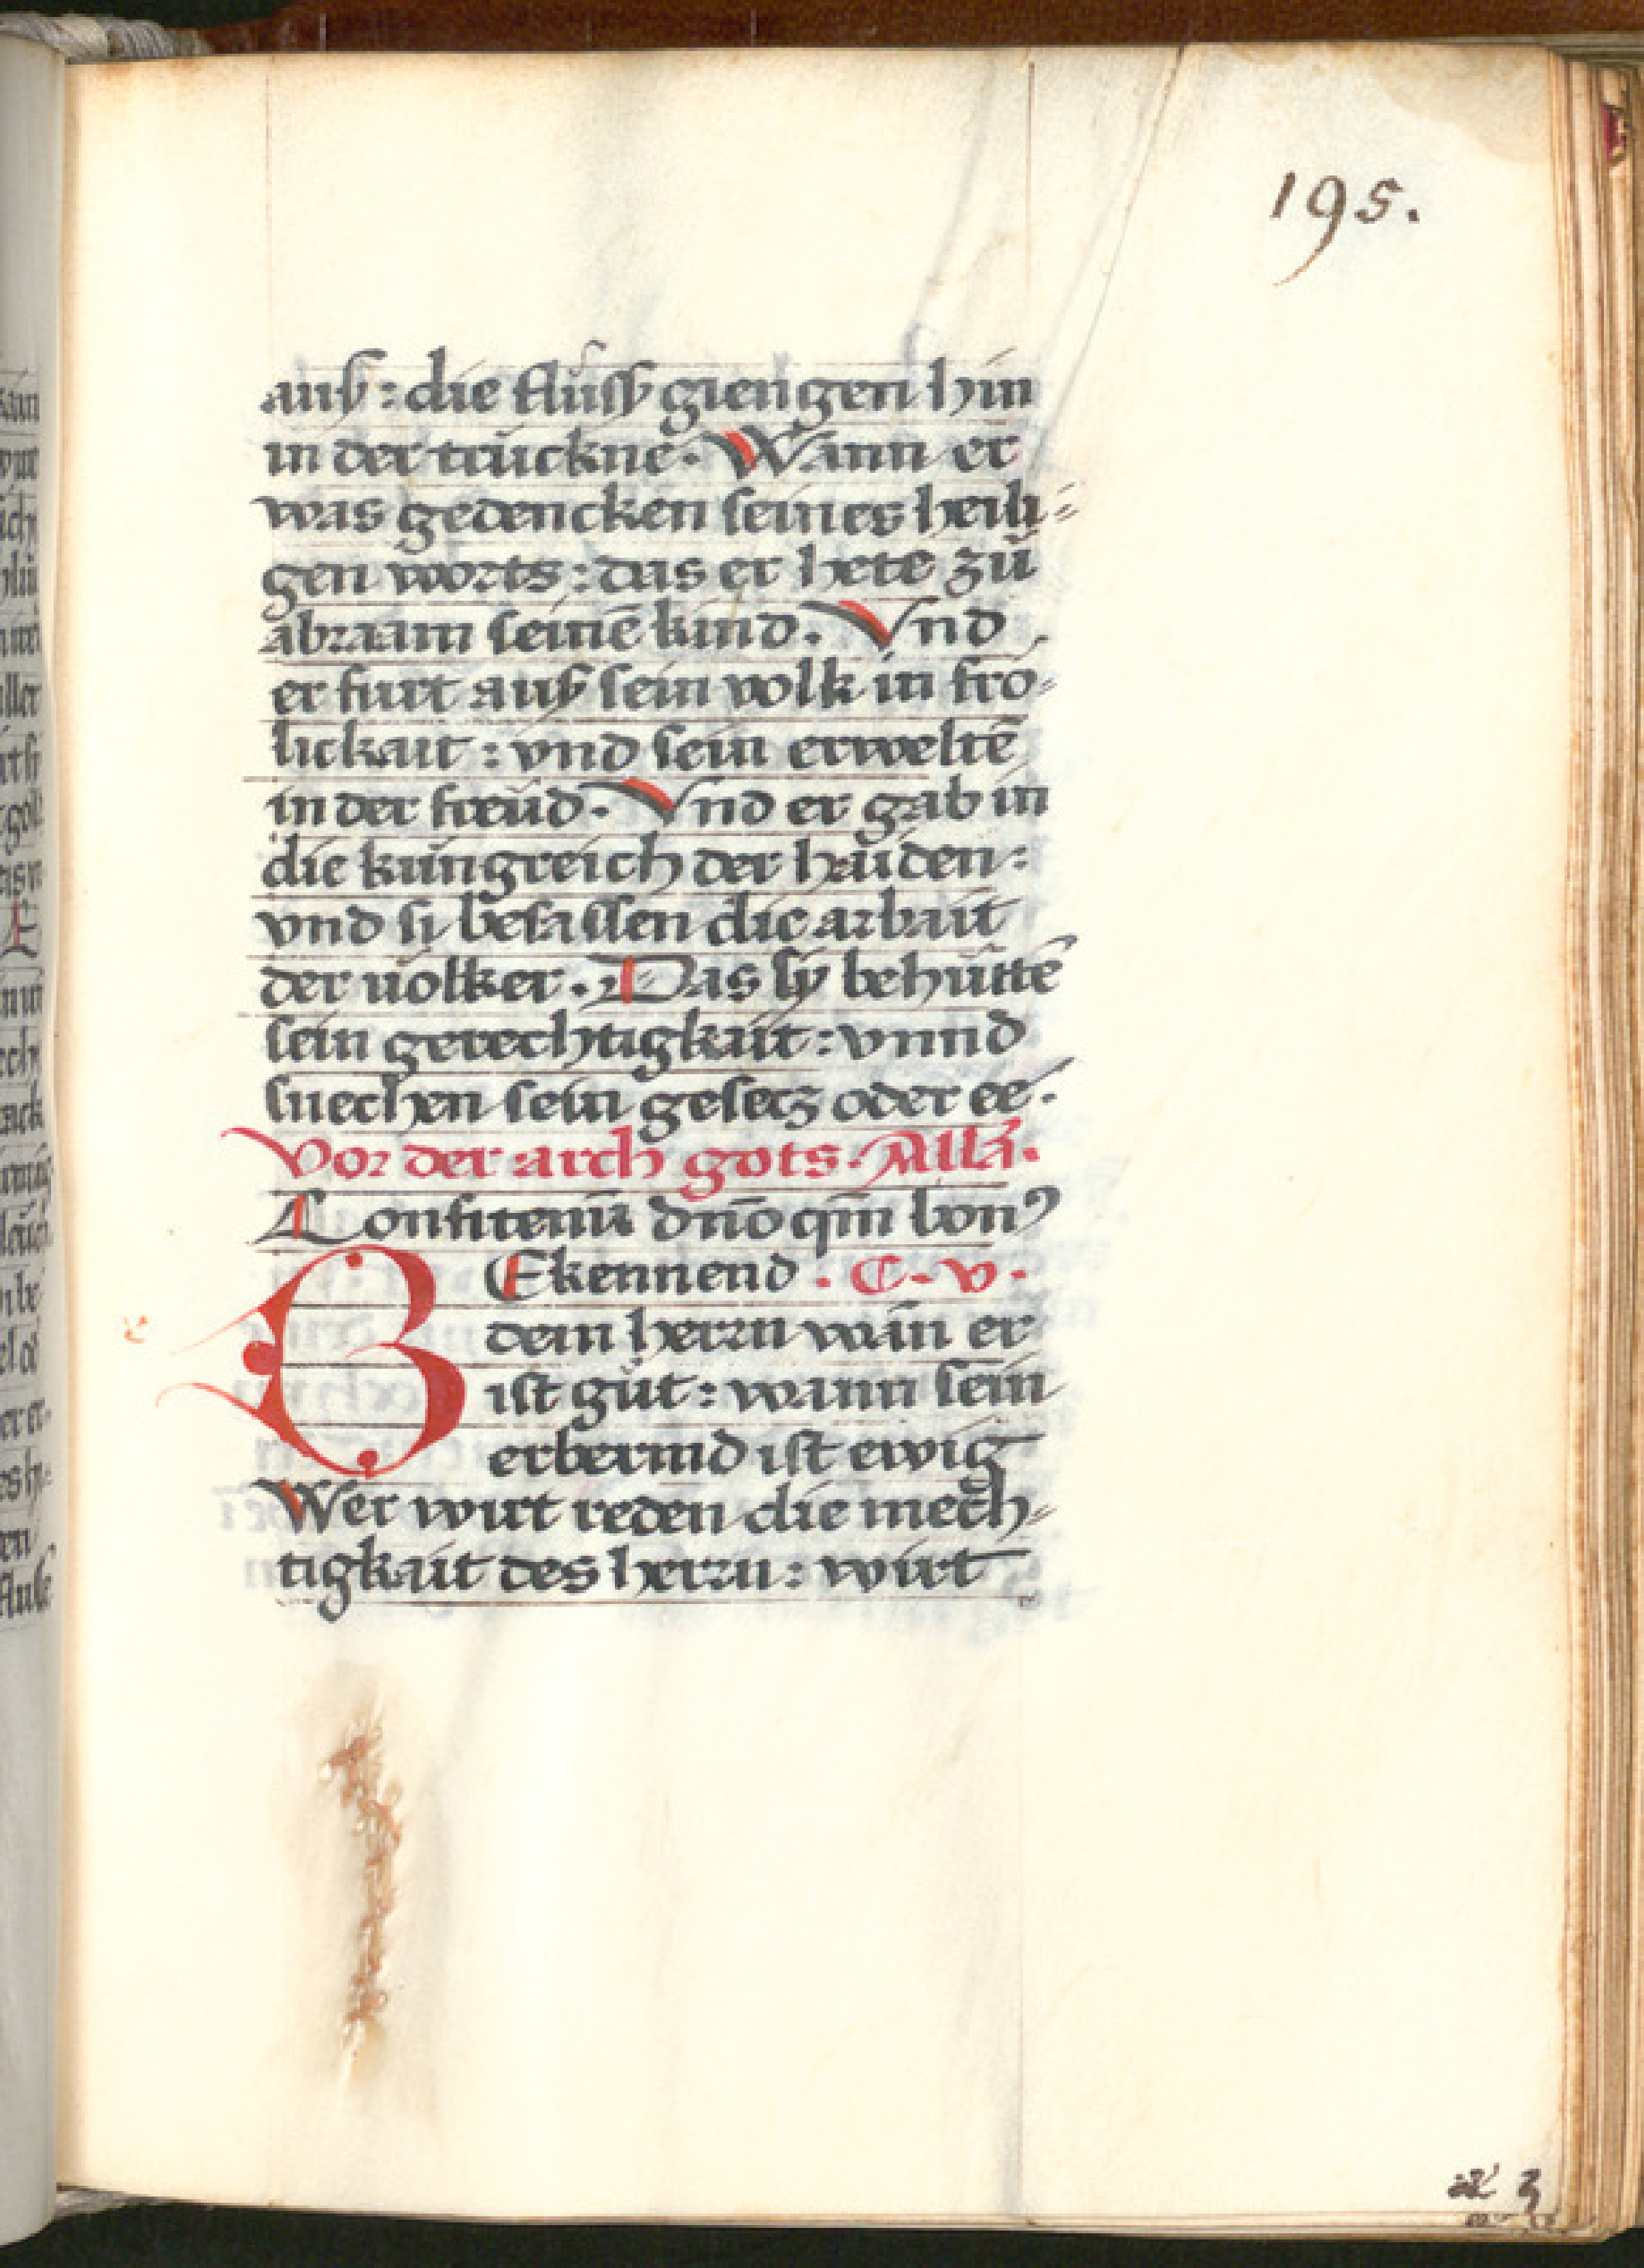 195.
auß: die flüssz giengen hin
in der trückne. Wann er
was gedencken seines heili-
gen worts: das er hete zů
abraam seinē kind. Vnd
er furt auß sein volk in frö-
lickait: vnd sein erweltē
in der freüd. Vnd er gab in
die küngreich der haiden:
vnd sj besassen die arbait
der völker. Das sÿ behüttē
sein gerechtigkait: vnnd
suechen sein gesetz oder ee.
Vor der arch gots. Alla.
Confitemī dn̄o qm̄ bonꝰ
BEkennend. C. v.
dem herrn wān er
ist gůt: wann sein
erbermd ist ewig
Wer wirt reden die mech-
tigkait des herrn: wirt